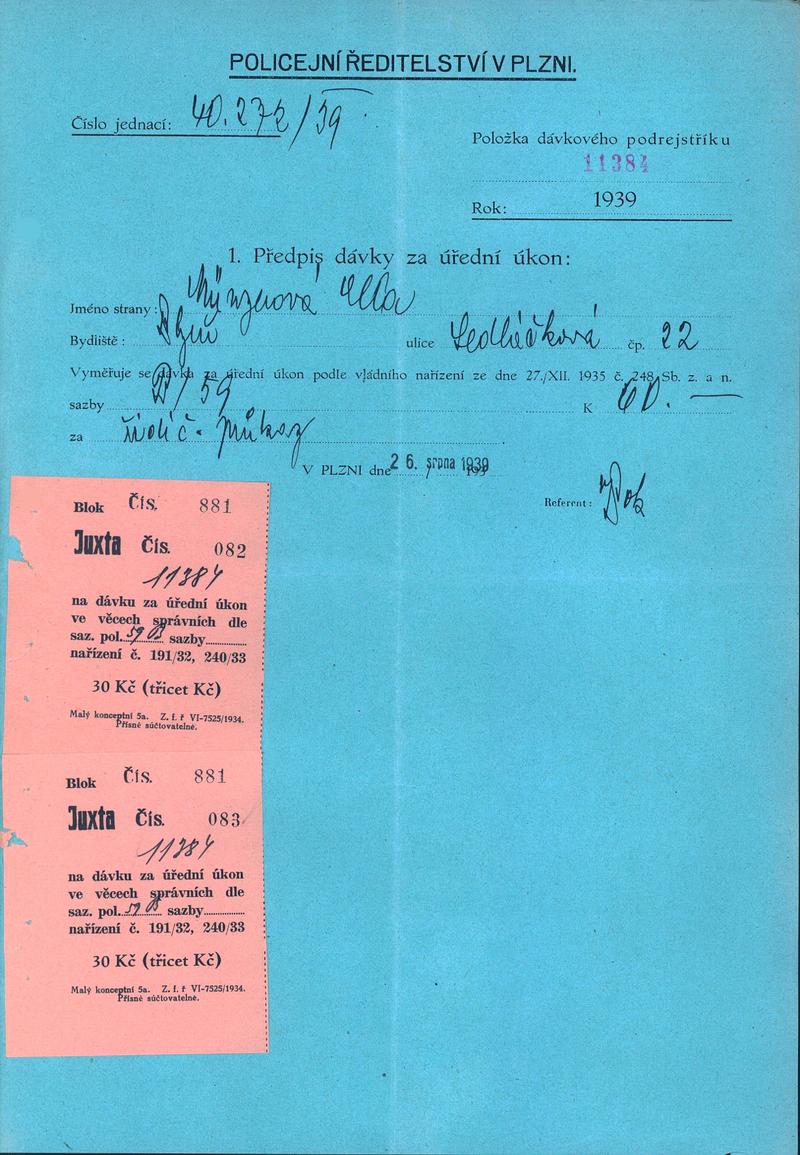 POLICEJNÍ ŘEDITELSTVÍ V PLZNI.
Číslo jednací: 40.272/39
Položka dávkového podrejstříku
11384
Rok: 1939
1. Předpis dávky za úřední úkon:
Jméno strany: Münzerová Ella
Bydliště: Plzeň ulice Sedláčková čp. 22
Vyměřuje se dávka za úřední úkon podle vládního nařízení ze dne 27./XII. 1935 č. 248 Sb. z. a n.
sazby B/59 K 60.—
za řidič. průkaz
V PLZNI dne 26. srpna 1939 193
Referent:
Blok Čís. 881
Juxta Čís. 082
11384
na dávku za úřední úkon
ve věcech správních dle
saz. pol. 59 B sazby
nařízení č. 191/32, 240/33
30 Kč (třicet Kč)
Malý konceptní 5a. Z. f. ř VI-7525/1934.
Přísně súčtovatelné.
Blok Čís. 881
Juxta Čís. 083
11384
na dávku za úřední úkon
ve věcech správních dle
saz. pol. 59 B sazby
nařízení č. 191/32, 240/33
30 Kč (třicet Kč)
Malý konceptní 5a. Z. f. ř VI-7525/1934.
Přísně súčtovatelné.